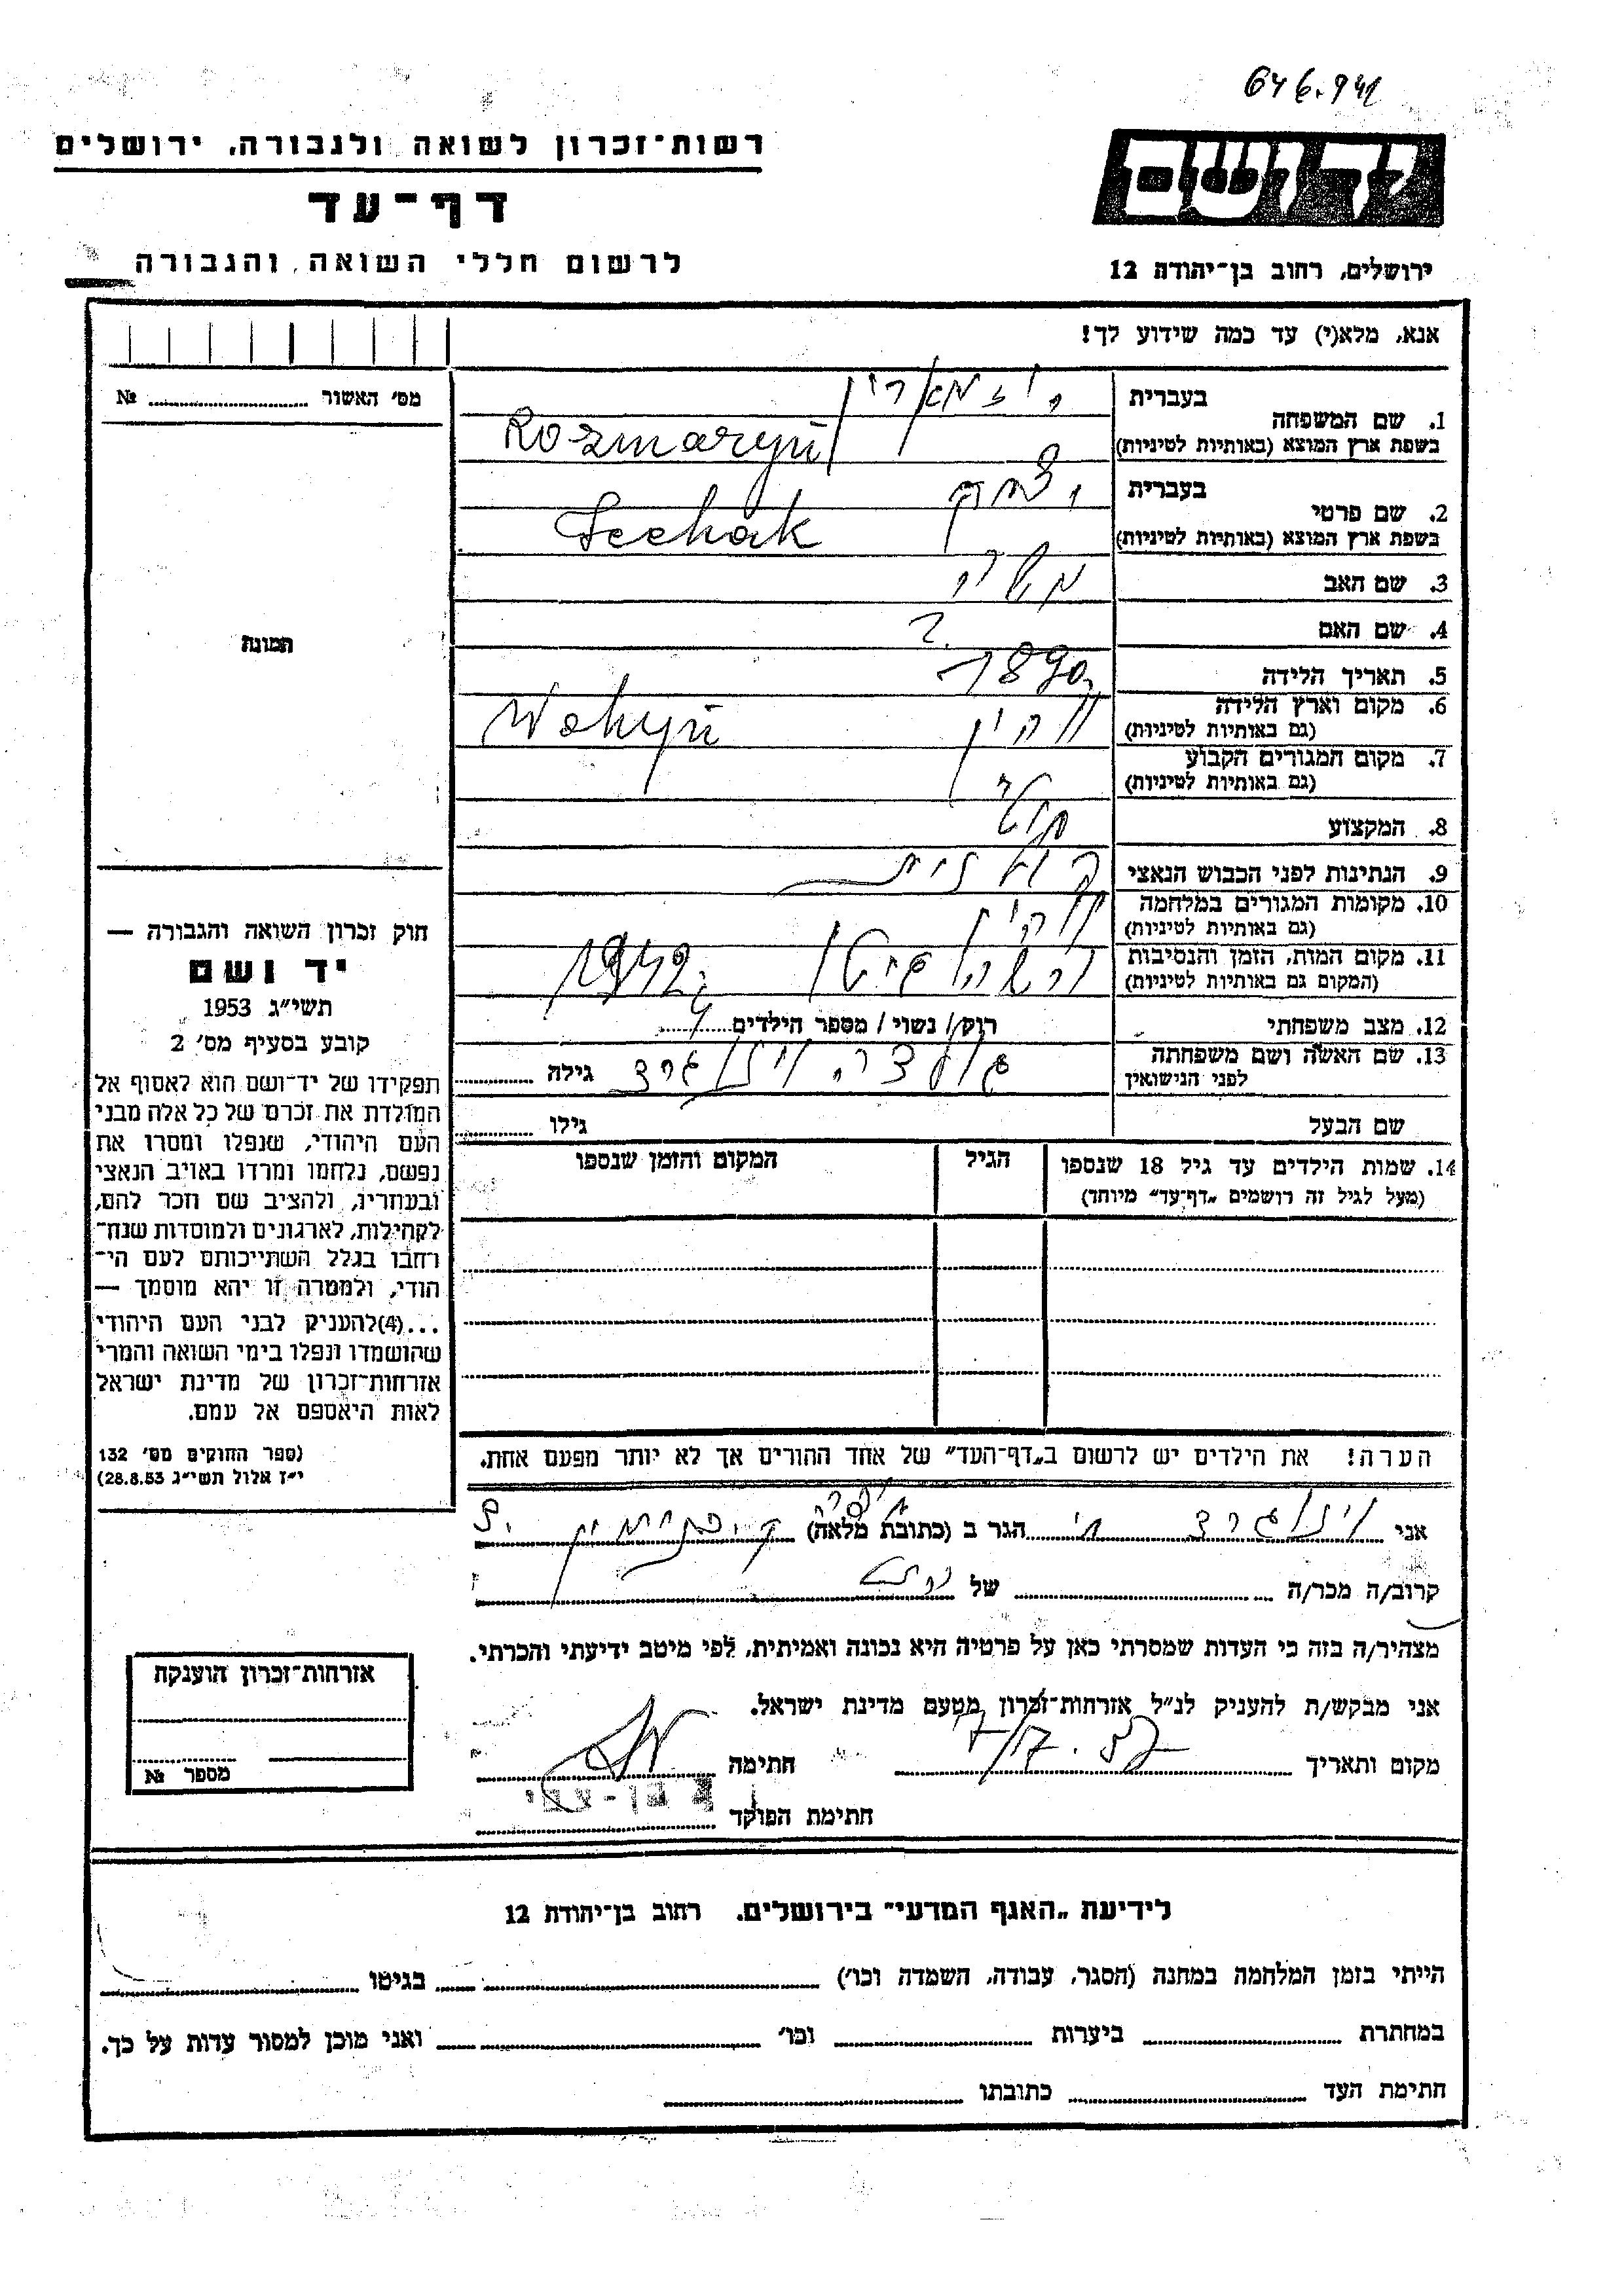 646.941
רשות־זכרון לשואה ולגבורה, ירושלים
דף־עד
לרשום חללי השואה והגבורה
יד ושם
ירושלים, רחוב בן־יהודה 12
אנא, מלא(י) עד כמה שידוע לך!
מס׳ האשור № 
בעברית
1. שם המשפחה
בשפת ארץ המוצא (באותיות לטיניות) Rozmaryń
בעברית יצחק
2. שם פרטי
בשפת ארץ המוצא (באותיות לטיניות) Icchak
3. שם האב משה
4. שם האם ?
5. תאריך הלידה 1890
6. מקום וארץ הלידה ווהין Wohyń
(גם באותיות לטיניות)
7. מקום המגורים הקבוע
(גם באותיות לטיניות)
8. המקצוע
9. הנתינות לפני הכבוש הנאצי פולנית
10. מקומות המגורים במלחמה ווהין
(גם באותיות לטיניות)
11. מקום המות, הזמן והנסיבות 1942
(המקום גם באותיות לטיניות)
12. מצב משפחתי רוק/ נשוי/ מספר הילדים 4
13. שם האשה ושם משפחתה גולדה וינוגרד גילה
לפני הנישואין
שם הבעל גילו
14. שמות הילדים עד גיל 18 שנספו הגיל המקום והזמן שנספו
(מעל לגיל זה רושמים „דף־עד״ מיוחד)
הערה! את הילדים יש לרשום ב„דף־העד״ של אחד ההורים אך לא יותר מפעם אחת.
תמונה
חוק זכרון השואה והגבורה —
יד ושם
תשי״ג 1953
קובע בסעיף מס׳ 2
תפקידו של יד־ושם הוא לאסוף אל
המולדת את זכרם של כל אלה מבני
העם היהודי, שנפלו ומסרו את
נפשם, נלחמו ומרדו באויב הנאצי
ובעוזריו, ולהציב שם וזכר להם,
לקהילות, לארגונים ולמוסדות שנח־
רבו בגלל השתייכותם לעם הי־
הודי, ולמטרה זו יהא מוסמך —
...(4)להעניק לבני העם היהודי
שהושמדו ונפלו בימי השואה והמרי
אזרחות־זכרון של מדינת ישראל
לאות היאספם אל עמם.
(ספר החוקים מס׳ 132
י״ז אלול תשי״ג 28.8.53)
אני וינוגרד הגר ב (כתובת מלאה)
קרוב/ה מכר/ה של
מצהיר/ה בזה כי העדות שמסרתי כאן על פרטיה היא נכונה ואמיתית, לפי מיטב ידיעתי והכרתי.
אני מבקש/ת להעניק לנ״ל אזרחות־זכרון מטעם מדינת ישראל.
מקום ותאריך חתימה
חתימת הפוקד
אזרחות־זכרון הוענקה
מספר №
לידיעת „האגף המדעי״ בירושלים. רחוב בן־יהודה 12
הייתי בזמן המלחמה במחנה (הסגר, עבודה, השמדה וכו׳) בגיטו
במחתרת ביערות וכו׳ ואני מוכן למסור עדות על כך.
חתימת העד כתובתו